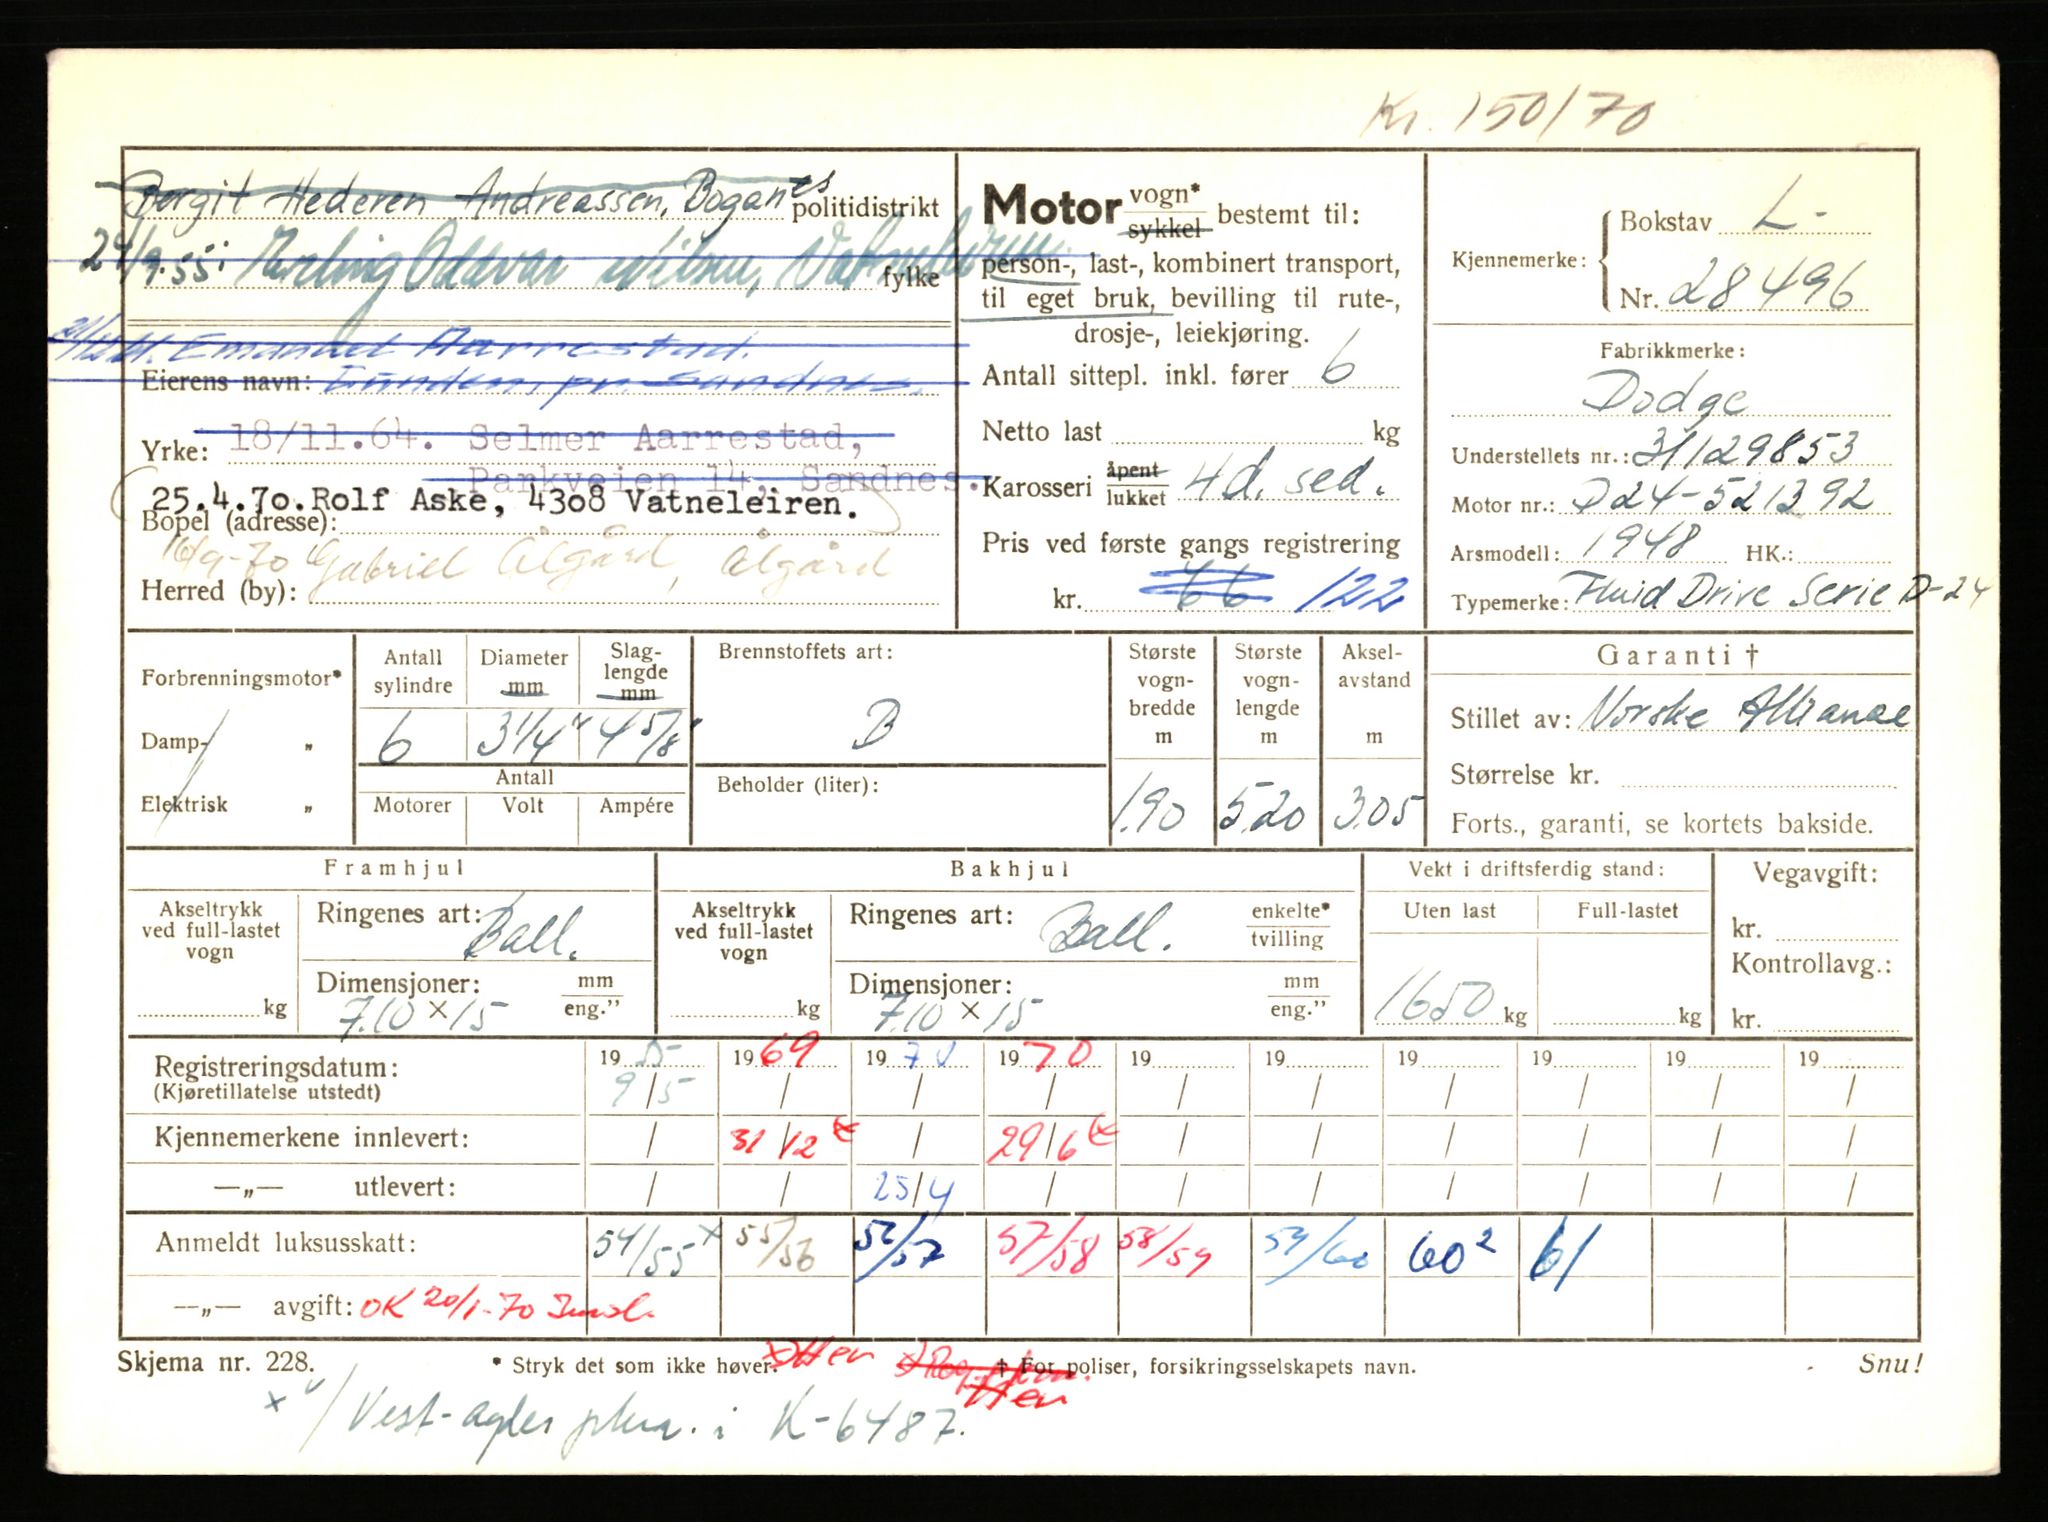 Kr. 150/70
Bergit Hederen Andreassen, Boganes
politidistrikt
24/9.55: Oddvar Nilsen,
fylke
Emanuel Aarrestad.
Eierens navn: pr. Sandnes.
Yrke: 18/11.64. Selmer Aarrestad,
Parkveien 14, Sandnes.
25.4.70. Rolf Aske, 4308 Vatneleiren.
Bopel (adresse):
16/9-70 Gabriel Ålgård, Ålgård
Herred (by):
Motor vogn* sykkel bestemt til:
person-, last-, kombinert transport,
til eget bruk, bevilling til rute-,
drosje-, leiekjøring.
Antall sittepl. inkl. fører 6
Netto last kg
Karosseri åpent lukket 4d. sed.
Pris ved første gangs registrering
kr. 66 122
Kjennemerke: Bokstav L-
Nr. 28496
Fabrikkmerke:
Dodge
Understellets nr.: 31129853
Motor nr.: D24-521392
Årsmodell: 1948 HK.:
Typemerke: Fluid Drive Serie D-24
Forbrenningsmotor*
Damp- „
Elektrisk „
Antall sylindre 6
Diameter mm 3 1/4"
Slaglengde mm 4 5/8"
Antall
Motorer Volt Ampére
Brennstoffets art:
B
Beholder (liter):
Største vognbredde m 1.90
Største vognlengde m 5.20
Akselavstand m 3.05
Garanti †
Stillet av: Norske Alliance
Størrelse kr.
Forts., garanti, se kortets bakside.
Framhjul
Akseltrykk ved full-lastet vogn kg
Ringenes art: Ball.
Dimensjoner: mm eng."
7.10 x 15
Bakhjul
Akseltrykk ved full-lastet vogn kg
Ringenes art: Ball. enkelte* tvilling
Dimensjoner: mm eng."
7.10 x 15
Vekt i driftsferdig stand:
Uten last Full-lastet
1650 kg kg
Vegavgift:
kr.
Kontrollavg.:
kr.
Registreringsdatum: 19 55 19 69 19 70 19 70 19 19 19 19 19 19
(Kjøretillatelse utstedt) 9/5 / / / / / / / / /
Kjennemerkene innlevert: / 31/12 x / 29/6 x / / / / / /
—„— utlevert: / / 25/4 / / / / / / /
Anmeldt luksusskatt: 54/55 x 55/56 56/57 57/58 58/59 59/60 60² 61
—„— avgift: OK 20/1-70
Skjema nr. 228.
* Stryk det som ikke høver.
† For poliser, forsikringsselskapets navn.
Snu!
x Hen
Hen
x / Vest-Agder i K-6487.